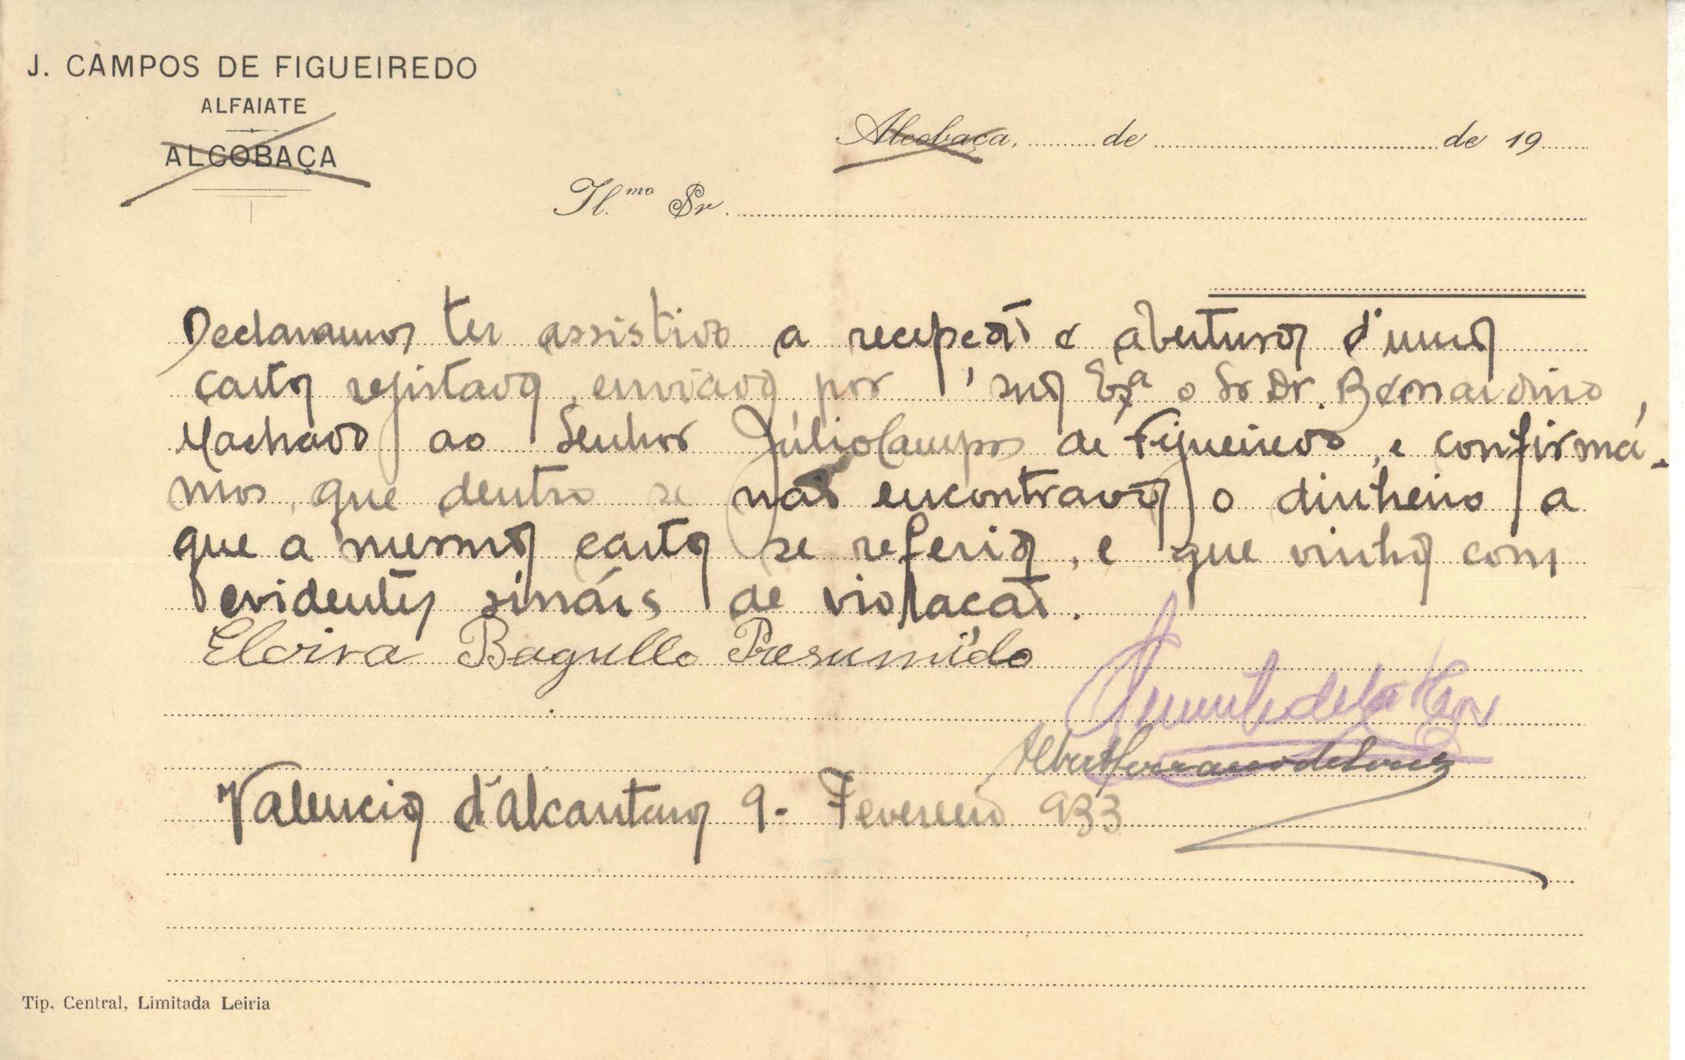 J. CAMPOS DE FIGUEIREDO
ALFAIATE
ALCOBAÇA
Alcobaça, de de 19
Il.mo Sr.
Declaramos ter assistido a recepção e abertura d'uma
carta registada, enviada por sua Exª o Sr Dr. Bernardino
Machado ao Senhor Júlio Campos de Figueiredo, e confirmá-
mos, que dentro se não encontrava o dinheiro a
que a mesma carta se referia, e que vinha com
evidentes sináis de violação.
Eloisa Bagullo Presumido
Valencia d'Alcantara 9- Fevereiro 933
Tip. Central, Limitada Leiria